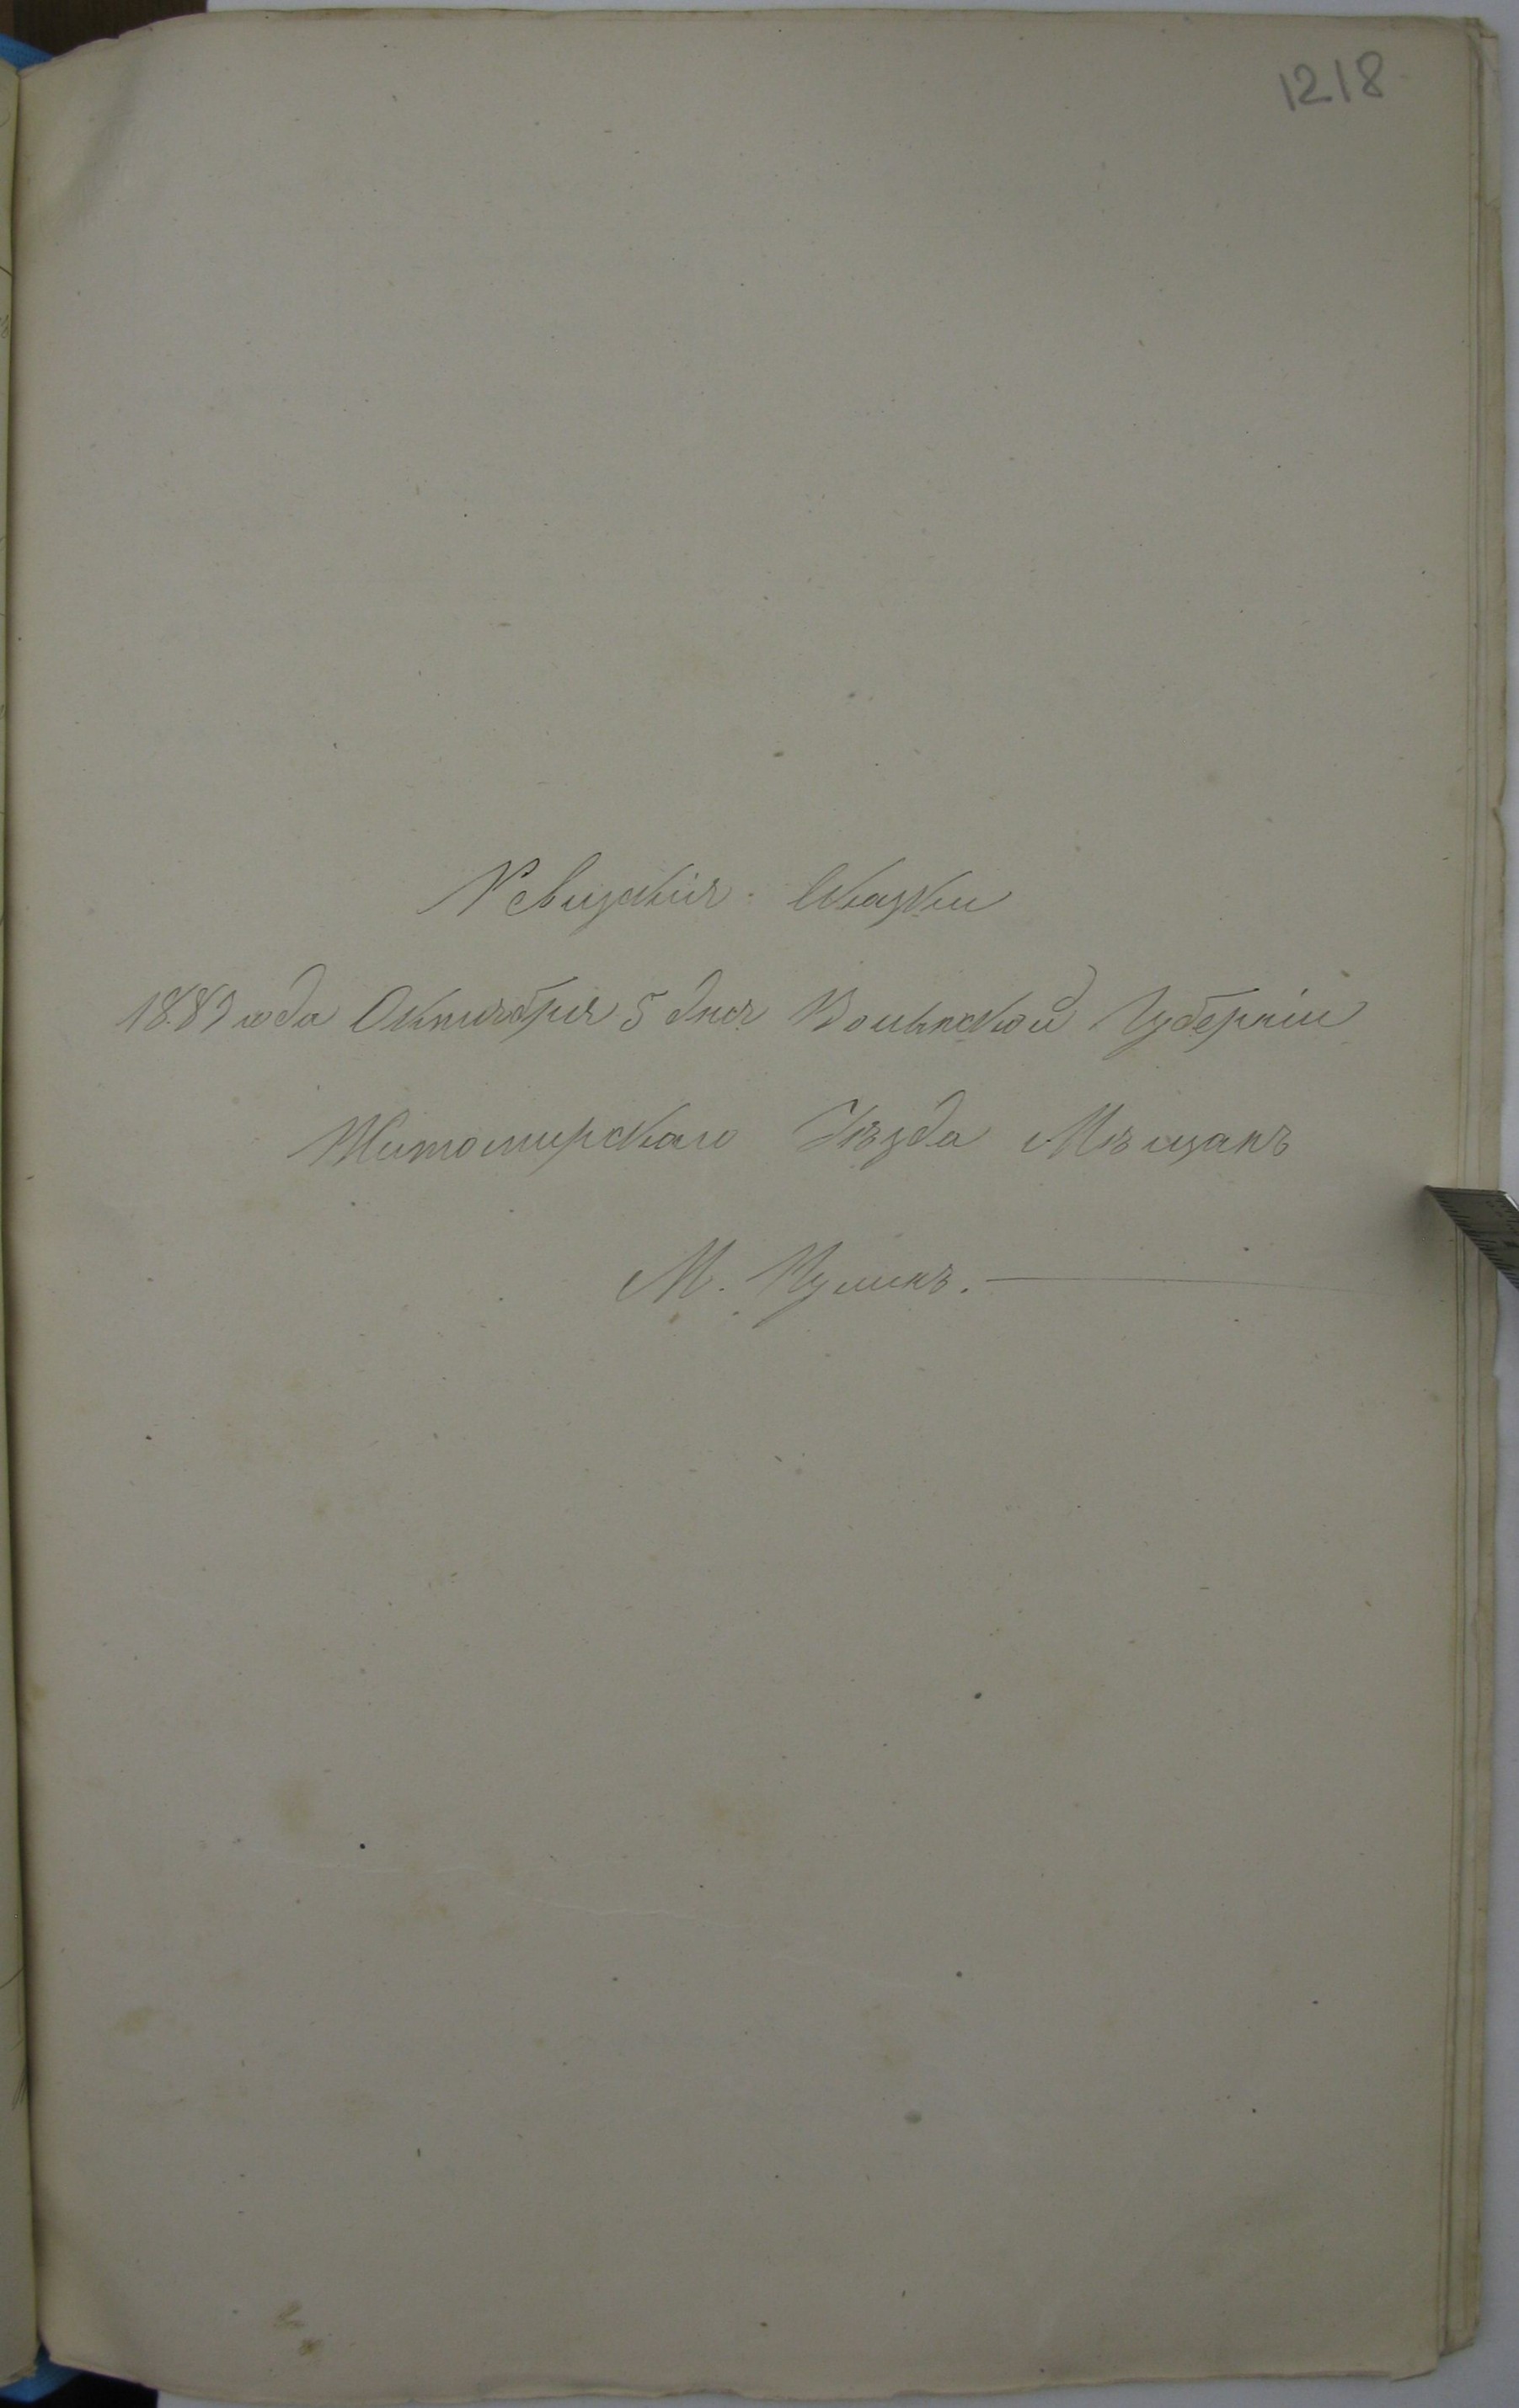 1218
Ревизскія Сказки
1883 года Октября 5 дня Волынской Губерніи
Житомирскаго Уѣзда Мѣщанъ
М. Пулинъ.